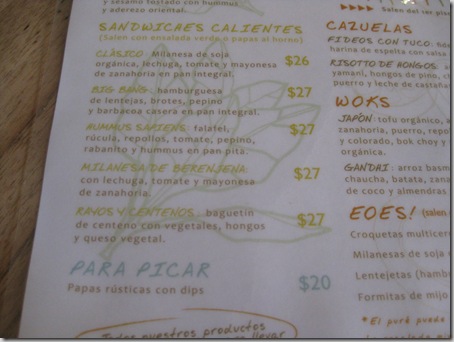 y sésamo tostado con hummus
y aderezo oriental.
SANDWICHES CALIENTES
(Salen con ensalada verde o papas al horno)
CLÁSICO: Milanesa de soja $26
orgánica, lechuga, tomate y mayonesa
de zanahoria en pan integral.
BIG BANG: hamburguesa $27
de lentejas, brotes, pepino
y barbacoa casera en pan integral.
HUMMUS SAPIENS: falafel, $27
rúcula, repollos, tomate, pepino,
rabanito y hummus en pan pita.
MILANESA DE BERENJENA:
con lechuga, tomate y mayonesa $27
de zanahoria.
RAYOS Y CENTENOS: baguetin $27
de centeno con vegetales, hongos
y queso vegetal.
PARA PICAR
Papas rústicas con dips $20
Todos nuestros productos
llevar
Salen del
CAZUELAS
FIDEOS CON TUCO:
harina de espelta con salsa
RISOTTO DE HONGOS:
yamani, hongos de pino,
puerro y leche de castaña
WOKS
JAPÓN: tofu orgánico,
zanahoria, puerro,
y colorado, bok choy y
orgánica.
GANDHI: arroz
chaucha, batata,
de coco y almendras
EOES! (salen
Croquetas
Milanesas de soja
Lentejetas
Formitas de mijo
* El puré puede